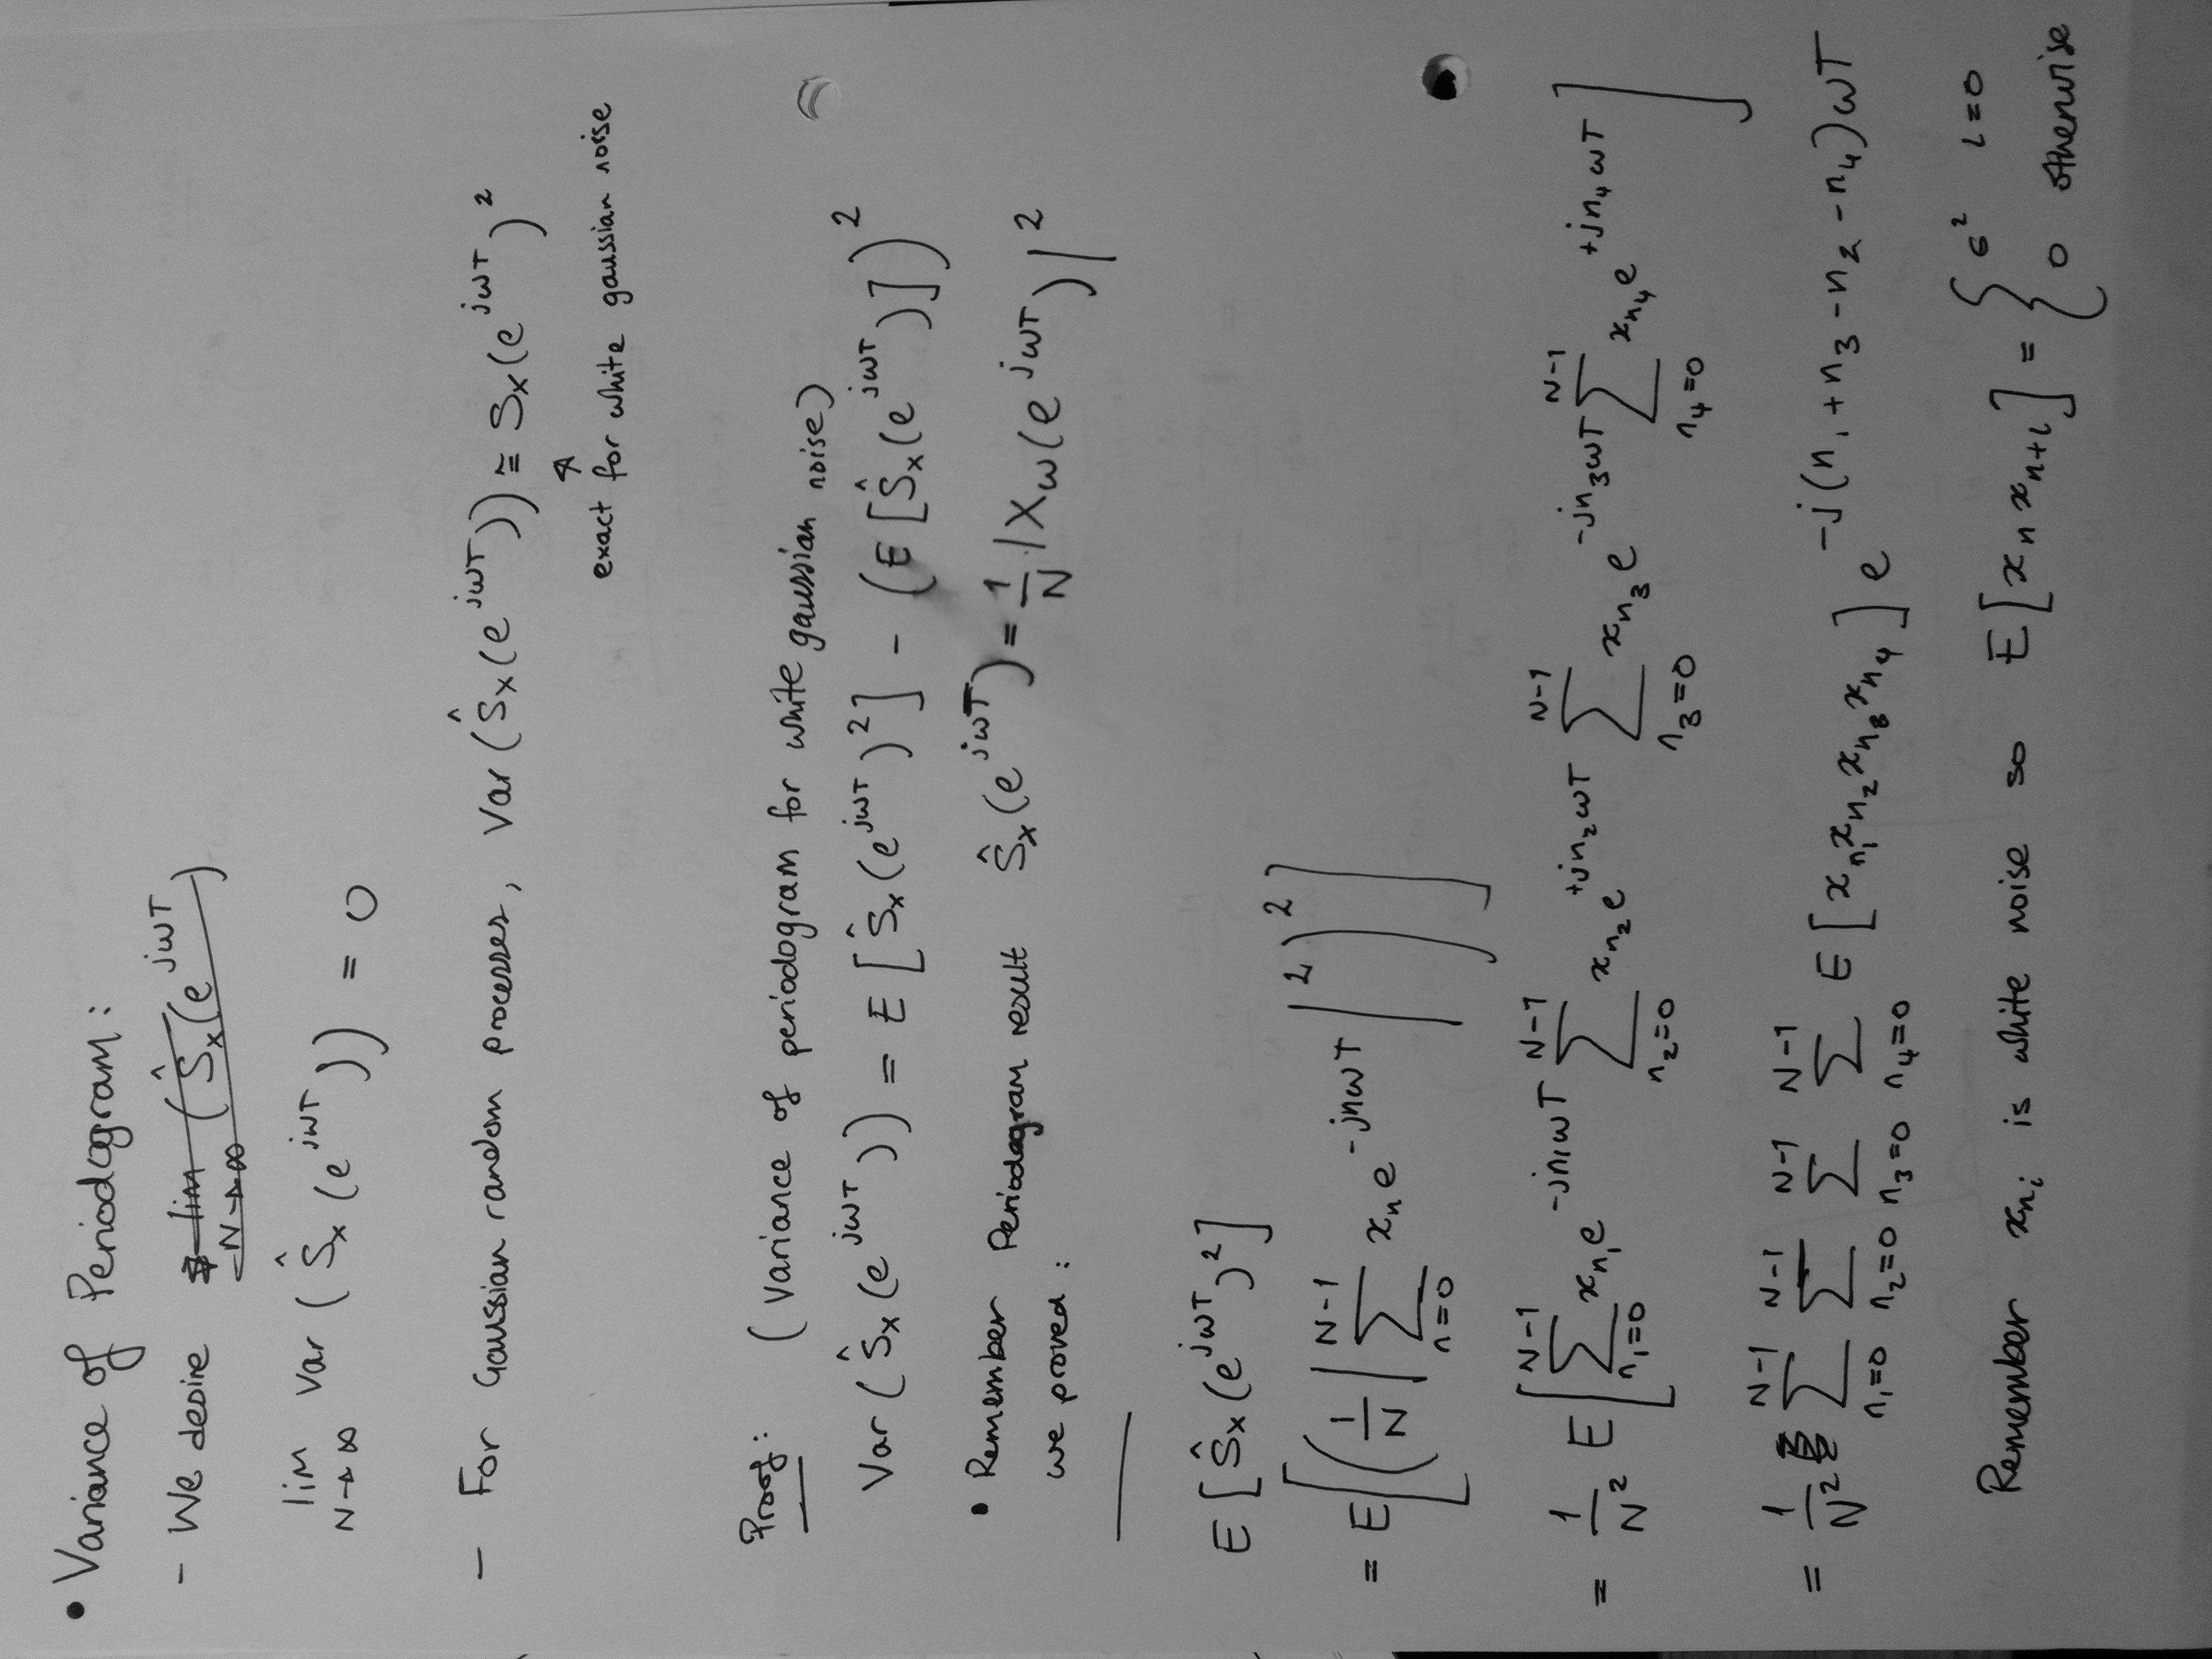 • Variance of Periodogram:
- We desire lim N→∞ (Ŝx(e^jωT)
lim N→∞ Var (Ŝx (e^jωT)) = 0
- For Gaussian random processes, Var (Ŝx(e^jωT)) ≅ Sx(e^jωT)²
↑
exact for white gaussian noise
Proof: (Variance of periodogram for white gaussian noise)
Var (Ŝx(e^jωT)) = E [Ŝx(e^jωT)²] - (E [Ŝx(e^jωT)])²
• Remember Periodogram result Ŝx(e^jωT) = 1/N |Xw(e^jωT)|²
we proved:
E [Ŝx(e^jωT)²]
= E[(1/N |∑_{n=0}^{N-1} x_n e^{-jnωT}|²)²]
= 1/N² E[∑_{n₁=0}^{N-1} x_{n₁} e^{-jn₁ωT} ∑_{n₂=0}^{N-1} x_{n₂} e^{+jn₂ωT} ∑_{n₃=0}^{N-1} x_{n₃} e^{-jn₃ωT} ∑_{n₄=0}^{N-1} x_{n₄} e^{+jn₄ωT}]
= 1/N² ∑_{n₁=0}^{N-1} ∑_{n₂=0}^{N-1} ∑_{n₃=0}^{N-1} ∑_{n₄=0}^{N-1} E [x_{n₁} x_{n₂} x_{n₃} x_{n₄}] e^{-j(n₁+n₃-n₂-n₄)ωT}
Remember x_{n_i} is white noise so E[x_n x_{n+l}] = { σ² l=0
0 otherwise